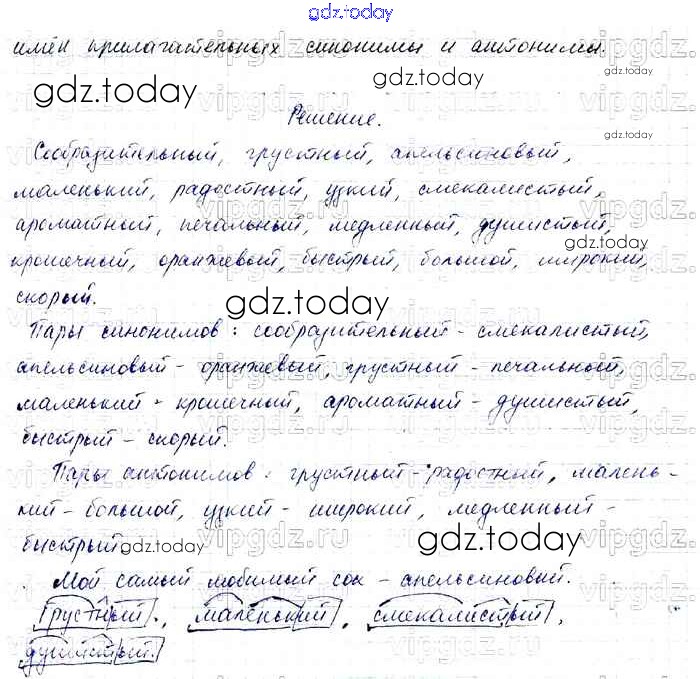 gdz.today
имён прилагательных синонимы и антонимы.
gdz.today
gdz.today
Решение.
gdz.today
Сообразительный, грустный, апельсиновый,
маленький, радостный, узкий, смекалистый,
ароматный, печальный, медленный, душистый,
gdz.today
крошечный, оранжевый, быстрый, большой, широкий,
скорый.
gdz.today
Пары синонимов: сообразительный - смекалистый,
апельсиновый - оранжевый, грустный - печальный,
маленький - крошечный, ароматный - душистый,
быстрый - скорый.
Пары антонимов: грустный - радостный, малень-
кий - большой, узкий - широкий, медленный -
быстрый.
gdz.today
gdz.today
Мой самый любимый сок - апельсиновый.
Грустный, маленький, смекалистый,
душистый.